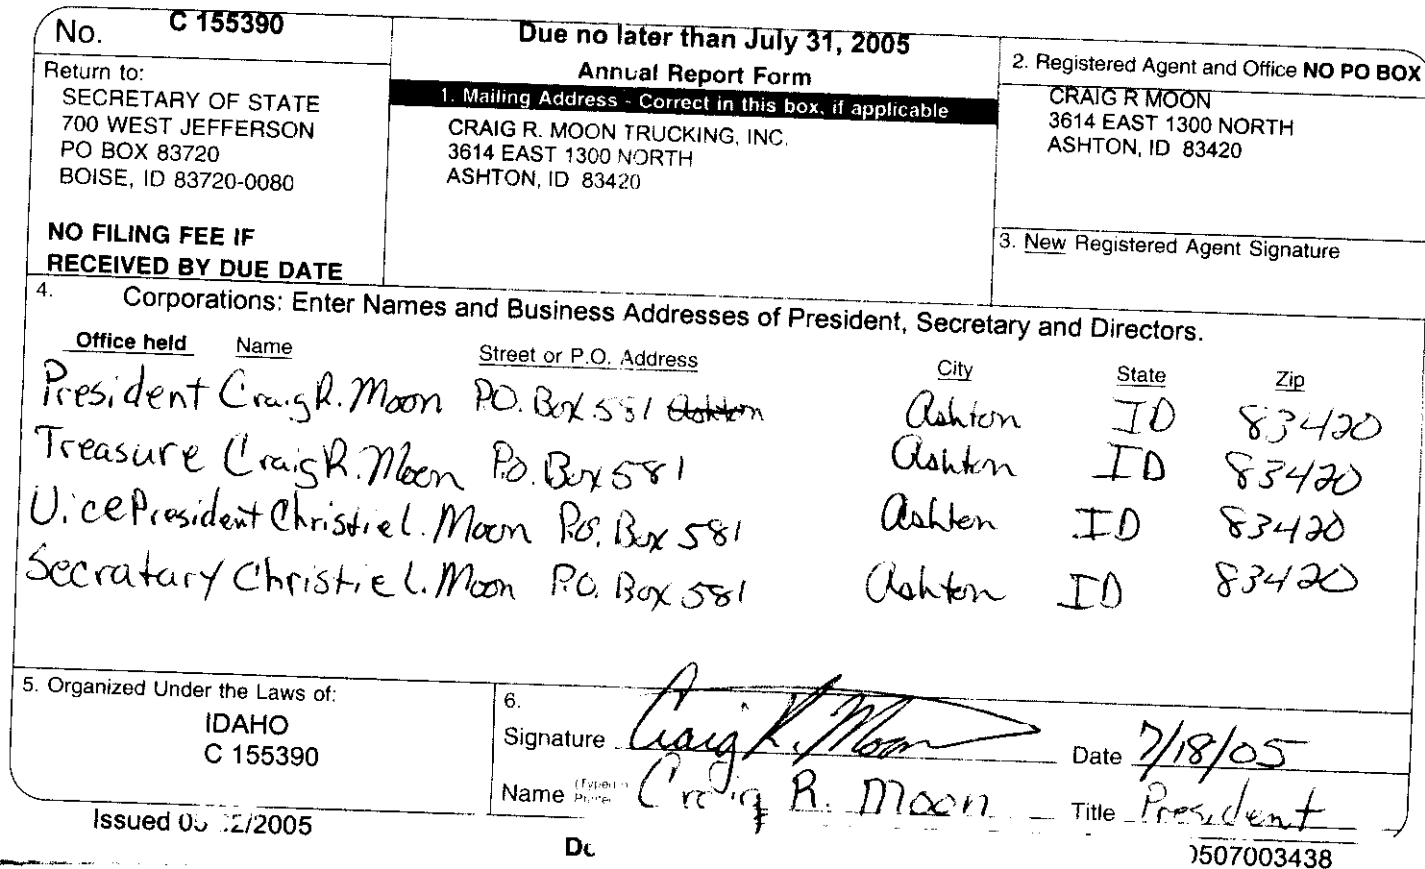 No. C 155390
Return to:
SECRETARY OF STATE
700 WEST JEFFERSON
PO BOX 83720
BOISE, ID 83720-0080
NO FILING FEE IF
RECEIVED BY DUE DATE
Due no later than July 31, 2005
Annual Report Form
1. Mailing Address - Correct in this box, if applicable
CRAIG R. MOON TRUCKING, INC.
3614 EAST 1300 NORTH
ASHTON, ID 83420
2. Registered Agent and Office NO PO BOX
CRAIG R MOON
3614 EAST 1300 NORTH
ASHTON, ID 83420
3. New Registered Agent Signature
4. Corporations: Enter Names and Business Addresses of President, Secretary and Directors.
Office held Name Street or P.O. Address City State Zip
President Craig R. Moon P.O. Box 581 Ashton Ashton ID 83420
Treasure Craig R. Moon P.O. Box 581 Ashton ID 83420
Vice President Christie L. Moon P.O. Box 581 Ashton ID 83420
Secratary Christie L. Moon P.O. Box 581 Ashton ID 83420
5. Organized Under the Laws of:
IDAHO
C 155390
6.
Signature Craig R. Moon Date 7/18/05
Name Craig R. Moon Title President
Issued 2/2005
0507003438